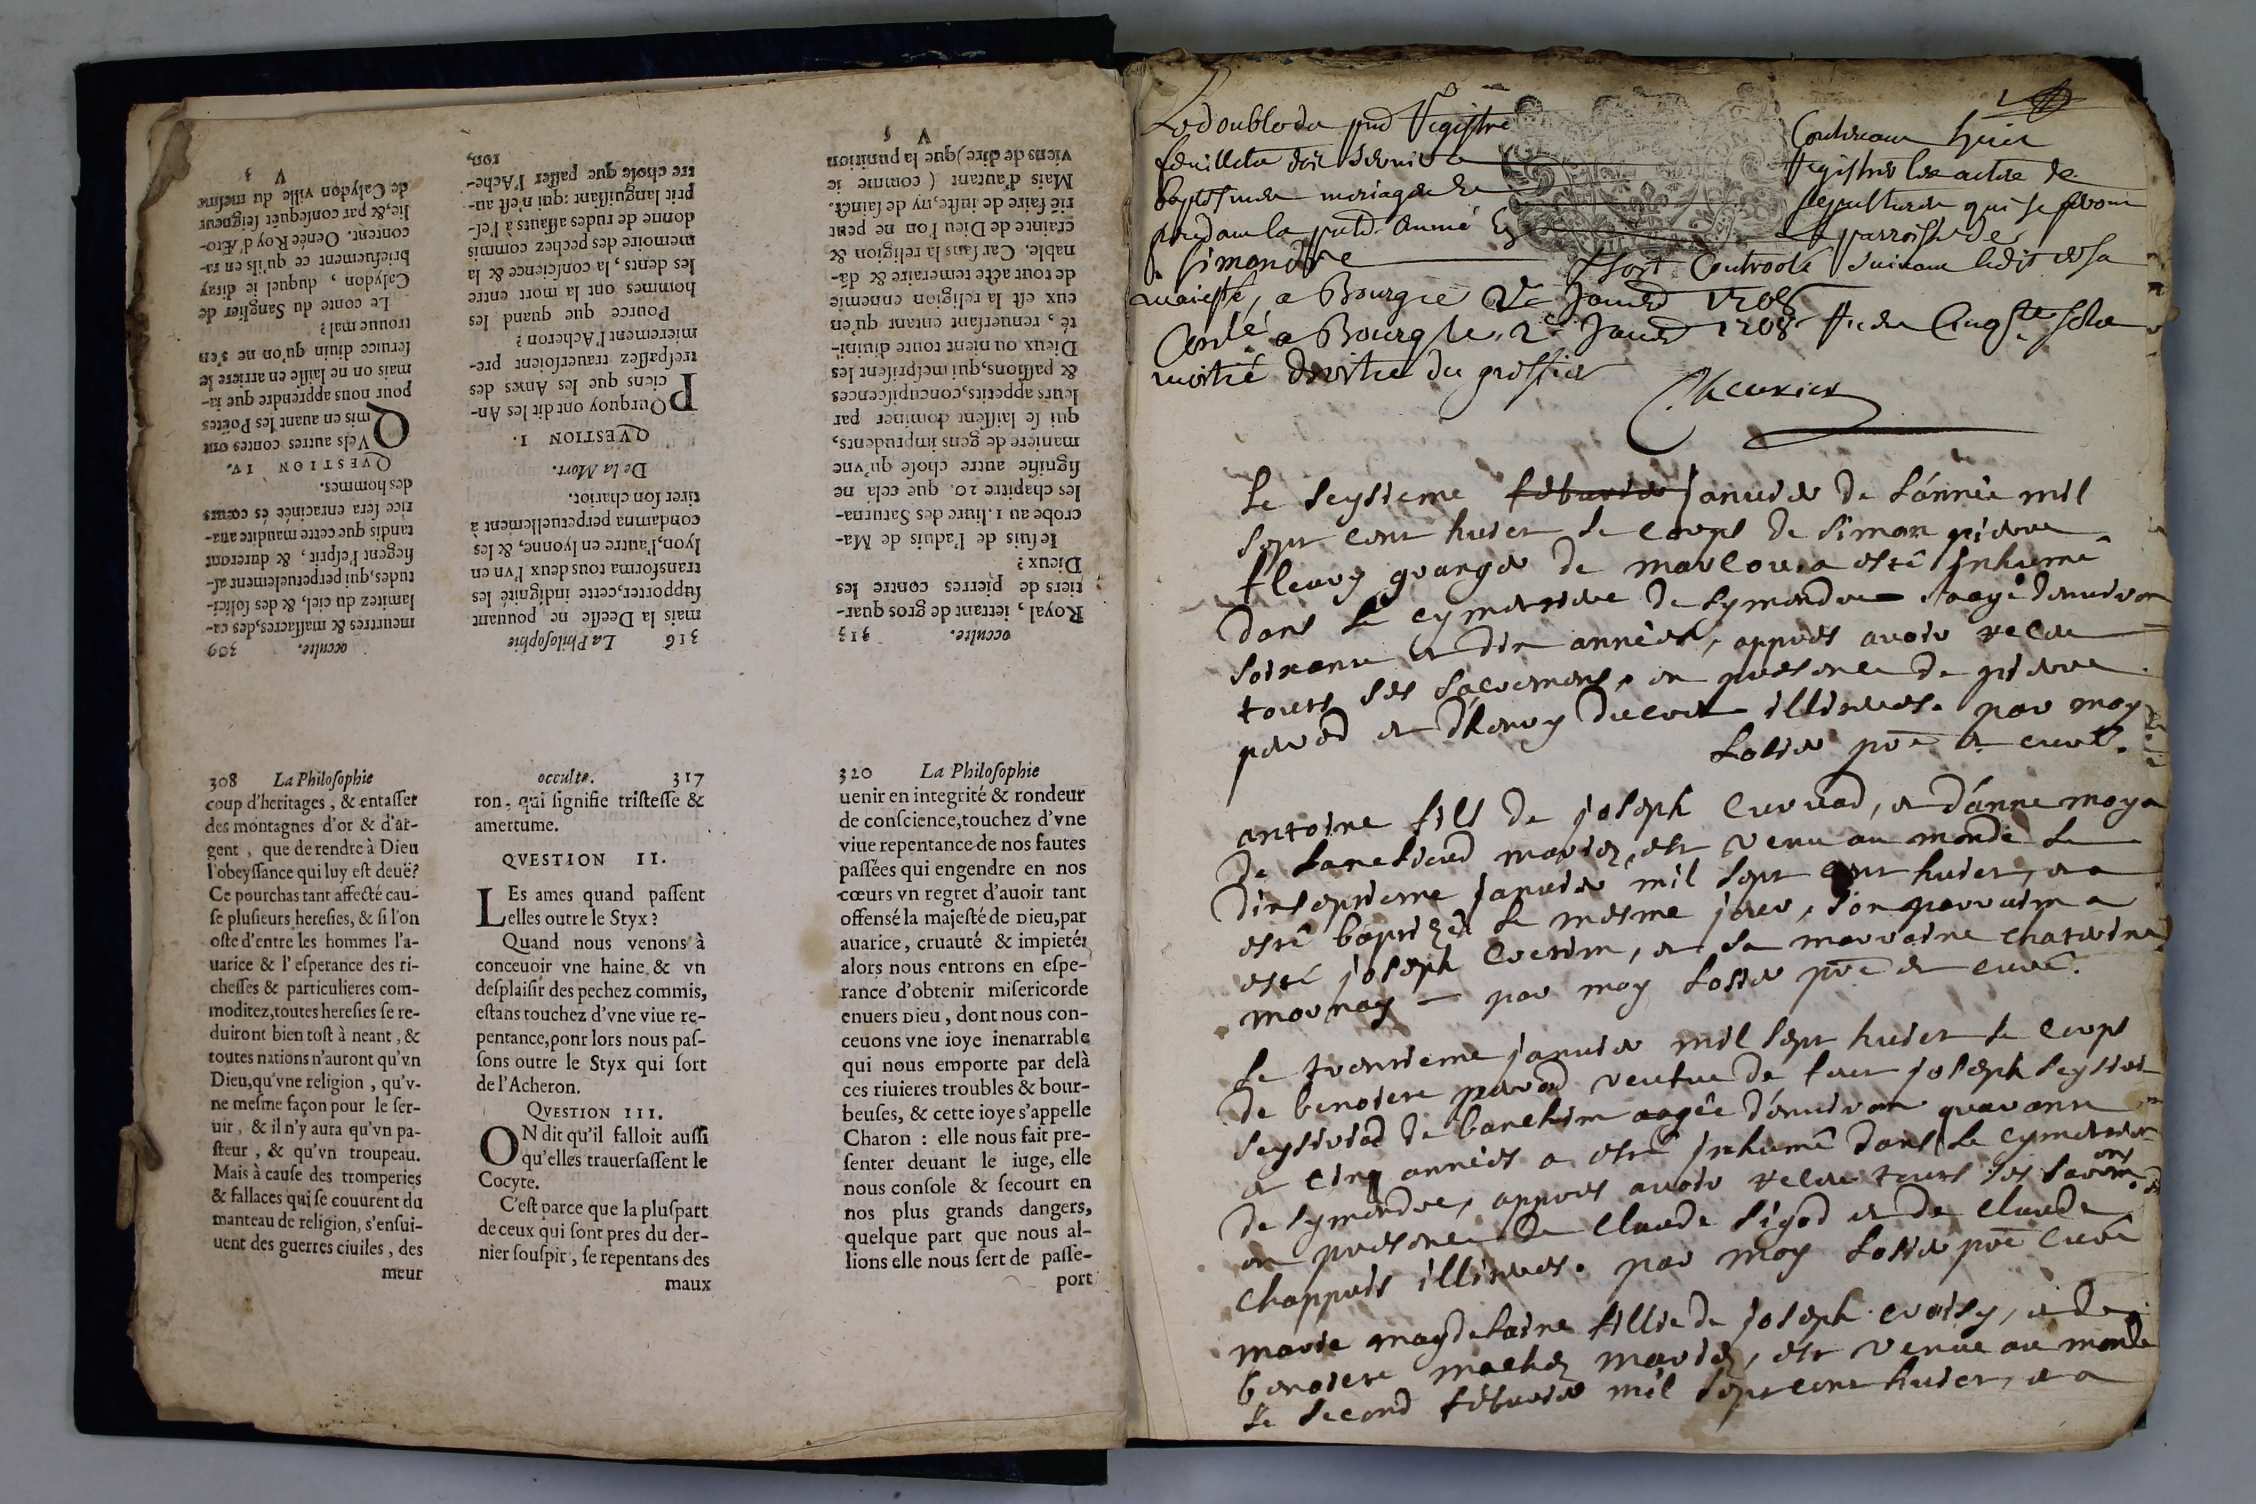 308 La Philosophie
coup d'heritages, & entasser
des montagnes d'or & d'ar-
gent, que de rendre à Dieu
l'obeyssance qui luy est deuë?
Ce pourchas tant affecté cau-
se plusieurs heresies, & si l'on
oste d'entre les hommes l'a-
uarice & l'esperance des ri-
chesses & particulieres com-
moditez, toutes heresies se re-
duiront bien tost à neant, &
toutes nations n'auront qu'vn
Dieu, qu'vne religion, qu'v-
ne mesme façon pour le ser-
uir, & il n'y aura qu'vn pa-
steur, & qu'vn troupeau.
Mais à cause des tromperies
& fallaces qui se couurent du
manteau de religion, s'ensui-
uent des guerres ciuiles, des
meur
occulte. 309
meurtres & massacres, des ca-
lamitez du ciel, & des solici-
tudes, qui perpetuelement as-
siegent l'esprit, & dureront
tandis que cette maudite aua-
rice sera enracinée és cœurs
des hommes.
QVESTION IV.
QVels autres contes ont
mis en auant les Poëtes
pour nous apprendre que ia-
mais on ne laisse en arriere le
seruice diuin qu'on ne s'en
trouue mal?
Le conte du Sanglier de
Calydon, duquel ie diray
briefuement ce qu'ils en ra-
content. Oenée Roy d'Æto-
lie, & par consequét seigneur
de Calydon ville du mesme
V 3
316 La Philosophie
mais la Deesse ne pouuant
supporter, cette indignité les
transforma tous deux l'vn en
lyon, l'autre en lyonne, & les
condamna perpetuellement à
tirer son chariot.
De la Mort.
QVESTION I.
POurquoy ont dit les An-
ciens que les Ames des
trespassez trauersoient pre-
mierement l'Acheron?
Pource que quand les
hommes ont la mort entre
les dents, la conscience & la
memoire des pechez commis
donne de rudes assauts à l'es-
prit languissant: qui n'est au-
tre chose que passer l'Ache-
ron,
occulte. 317
ron, qui signifie tristesse &
amertume.
QVESTION II.
LEs ames quand passent
elles outre le Styx?
Quand nous venons à
conceuoir vne haine & vn
desplaisir des pechez commis,
estans touchez d'vne viue re-
pentance, pour lors nous pas-
sons outre le Styx qui sort
de l'Acheron.
QVESTION III.
ON dit qu'il falloit aussi
qu'elles trauersassent le
Cocyte.
C'est parce que la pluspart
de ceux qui sont pres du der-
nier souspir, se repentans des
maux
occulte. 313
Royal, iettant de gros quar-
tiers de pierres contre les
Dieux?
Ie suis de l'aduis de Ma-
crobe au 1. liure des Saturna-
les chapitre 20. que cela ne
signifie autre chose qu'vne
maniere de gens imprudents,
qui se laissent dominer par
leurs appetits, concupiscences
& passions, qui mesprisent les
Dieux ou nient toute diuini-
té, renuersant entant qu'en
eux est la religion ennemie
de tout acte temeraire & dã-
nable. Car sans la religion &
crainte de Dieu l'on ne peut
riẽ faire de iuste, ny de sainct.
Mais d'autant (comme ie
viens de dire) que la punition
V 5
320 La Philosophie
uenir en integrité & rondeur
de conscience, touchez d'vne
viue repentance de nos fautes
passées qui engendre en nos
cœurs vn regret d'auoir tant
offensé la majesté de Dieu, par
auarice, cruauté & impieté,
alors nous entrons en espe-
rance d'obtenir misericorde
enuers Dieu, dont nous con-
ceuons vne ioye inenarrable
qui nous emporte par delà
ces riuieres troubles & bour-
beuses, & cette ioye s'appelle
Charon: elle nous fait pre-
senter deuant le iuge, elle
nous console & secourt en
nos plus grands dangers,
quelque part que nous al-
lions elle nous sert de passe-
port
Registre Contenant huict
feuillets registrer les actes de
baptesmes mariages sepultures qui se feront
parroisse de
Simandre
controole suiuant ledit de sa
maieste, a Bourg le 2e Janer 1708
a Bourg le 2e Janer 1708
moitié du greffier
Le seysieme januier de l'année mil
sept cent huict le corps de simon pierre
fleury granger de a esté inhumé
dans le cymetiere de symandre aagé d'enuiron
soixante et dix années, appres auoir receu
touts ses sacremens, en presence de pierre
perod et illiterés. par moy
pbre et curé.
antoine fils de joseph et d'anne
mariez, est venu au monde le
dixseptieme januier mil sept cent huict, et a
esté baptizé le mesme jour, son parrain a
esté joseph et sa marraine
par moy pbre et curé.
Le trentieme januier mil sept huict le corps
de benoite perod veufue de feu joseph
de aagée d'enuiron quarante
et cinq années a esté inhumé dans le cymetiere
de symandre, appres auoir receu touts ses
en presence de claude et de claude
chappuis illiterés. par moy pbre curé
marie magdelaine fillie de joseph et de
benoite mariez, est venue au monde
le second feburier mil sept cent huict, et a